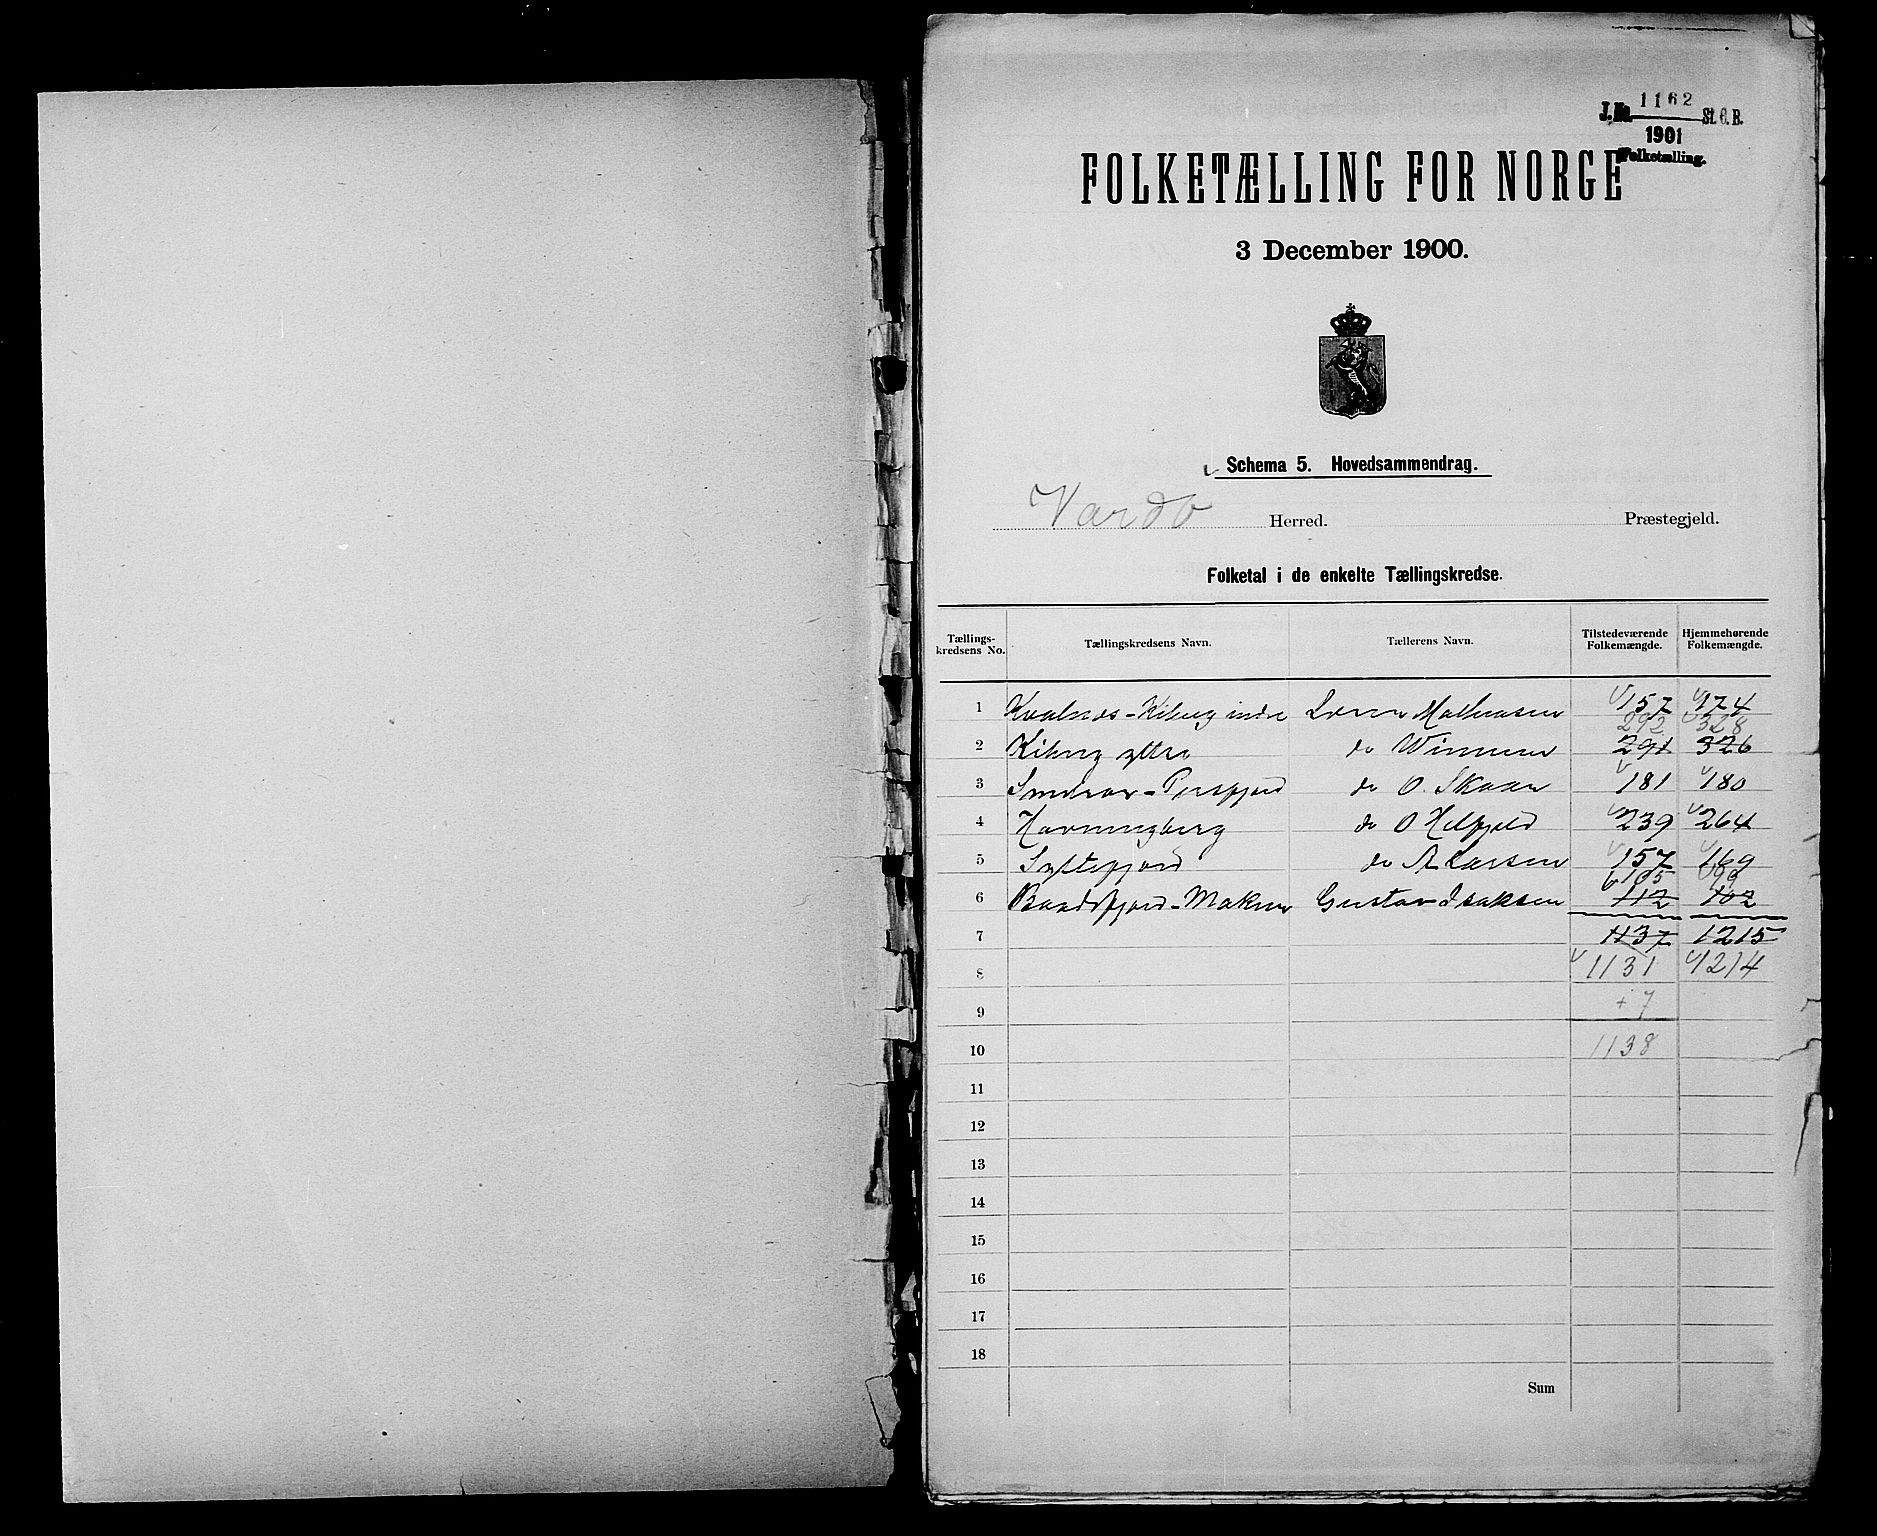 J.No. 1162 St.C.B.
1901
Folketælling.
FOLKETÆLLING FOR NORGE
3 December 1900.
Schema 5. Hovedsammendrag.
Vardö Herred. Præstegjeld.
Folketal i de enkelte Tællingskredse.
Tællings-kredsens No. Tællingskredsens Navn. Tællerens Navn. Tilstedeværende Folkemængde. Hjemmehørende Folkemængde.
1 Kiberg indre 157 174
292 328
2 Kiberg ytre do 291 326
3 Persfjord do O. Skaar 181 180
4 Havningberg do O 239 264
5 Syltefjord do A Larsen 157 169
105 99
6 Baadsfjord-Makur Gustav Isaksen 112 102
7 1137 1215
8 1131 1214
9 +7
10 1138
11
12
13
14
15
16
17
18
Sum